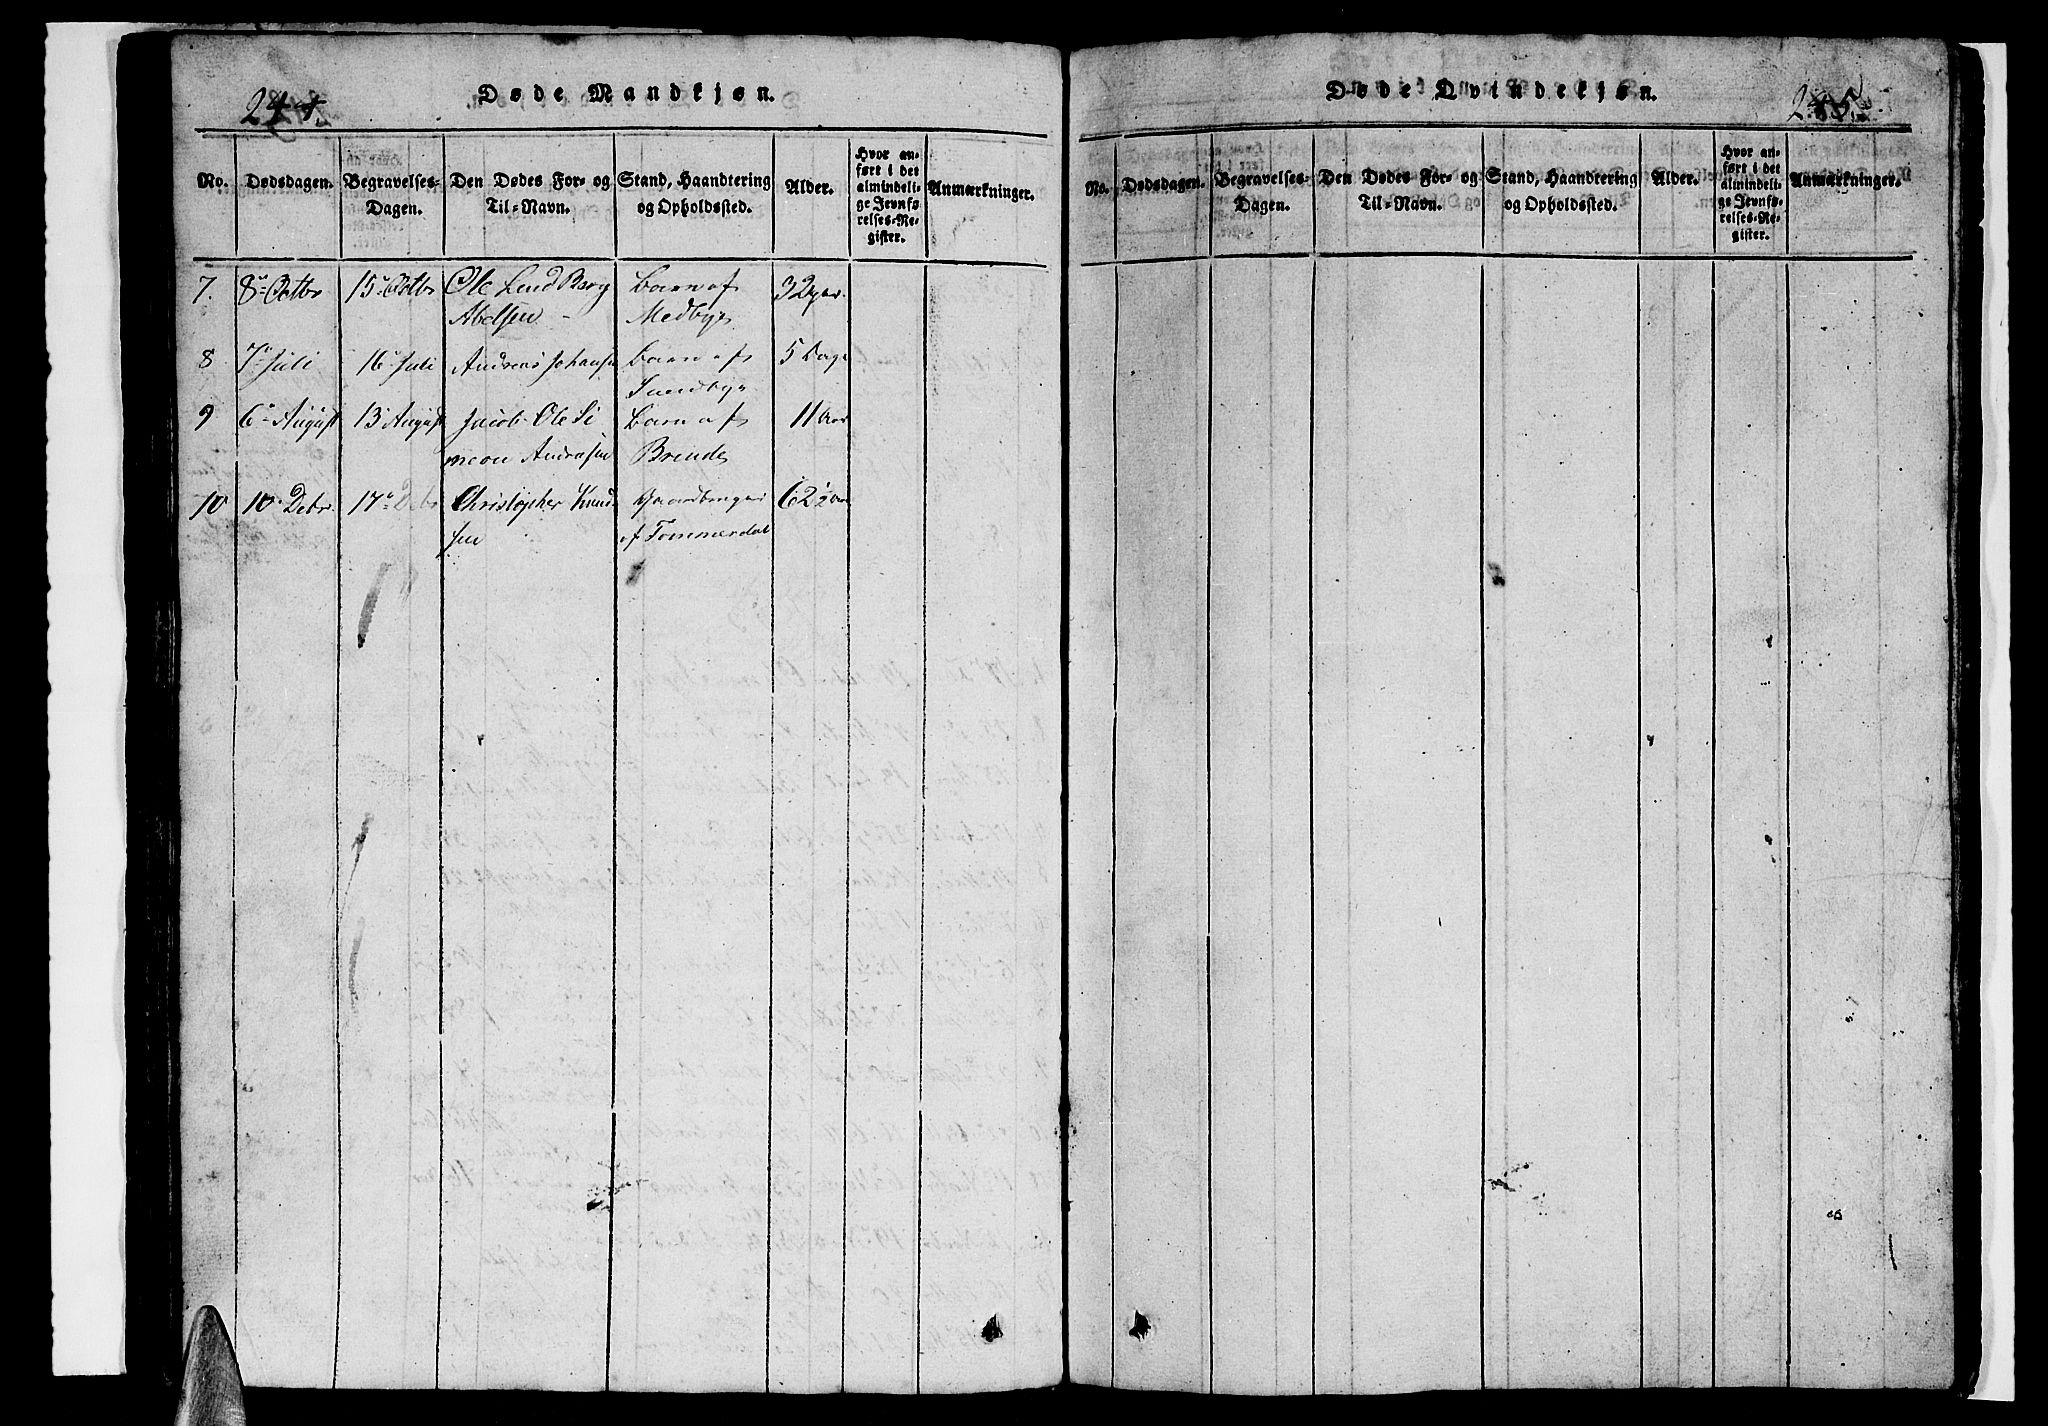 244.
Døde Mandkjøn.
No.
Dødsdagen.
Begravelses-
Dagen.
Den Dødes For- og
Til-Navn.
Stand, Haandtering
og Opholdssted.
Alder.
Hvor an-
ført i det
almindeli-
ge Jevnfø-
relses-Re-
gister.
Anmærkninger.
7. 8de Octbr 15de Octbr Ole Lund Berg Barn af
Abelsen - Medbye
8 7de Juli 16de Juli Andreas Johansen Barn af 5 Dage
Sundbye
9 6de August 13de August Jacob Ole Si Barn af 11 Aar
meon Andrasen Breude
10 10de Debr. 17de Debr Christopher Knud Gaardbruger 62½ Aar
sen af Tømmerdal
Døde Qvindekjøn.
245.
No.
Dødsdagen.
Begravelses-
Dagen.
Den Dødes For- og
Til-Navn.
Stand, Haandtering
og Opholdssted.
Alder.
Hvor an-
ført i det
almindeli-
ge Jevnfø-
relses-Re-
gister.
Anmærkninger.